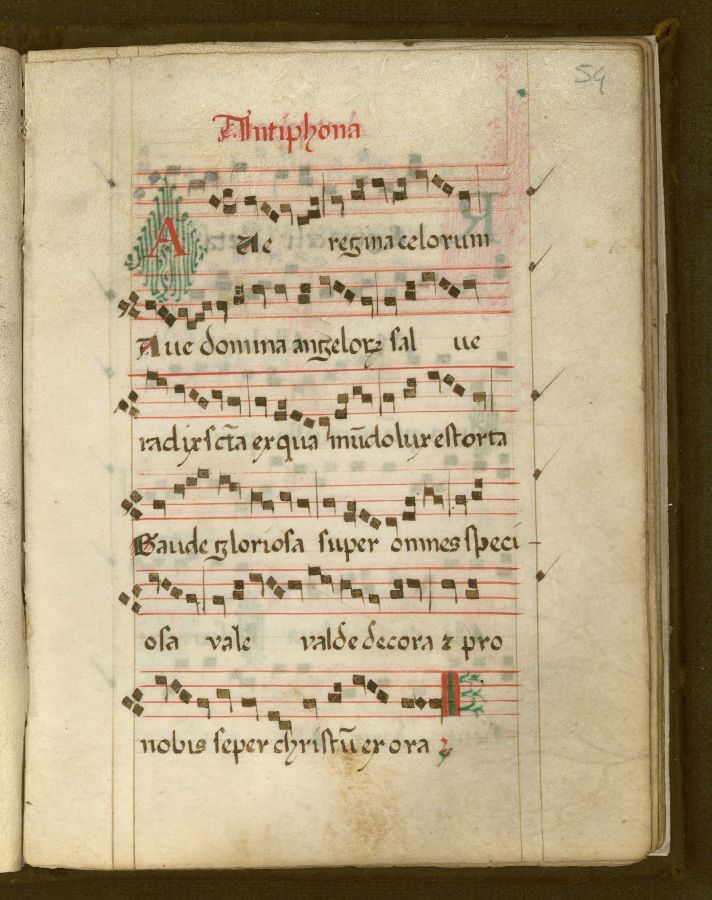 54
Antiphona
Aue regina celorum
Aue domina angeloꝝ salue
radix sct̄a ex qua mūdo lux est orta
Gaude gloriosa super omnes speci-
osa vale valde decora ⁊ pro
nobis seper christū exora ⁊